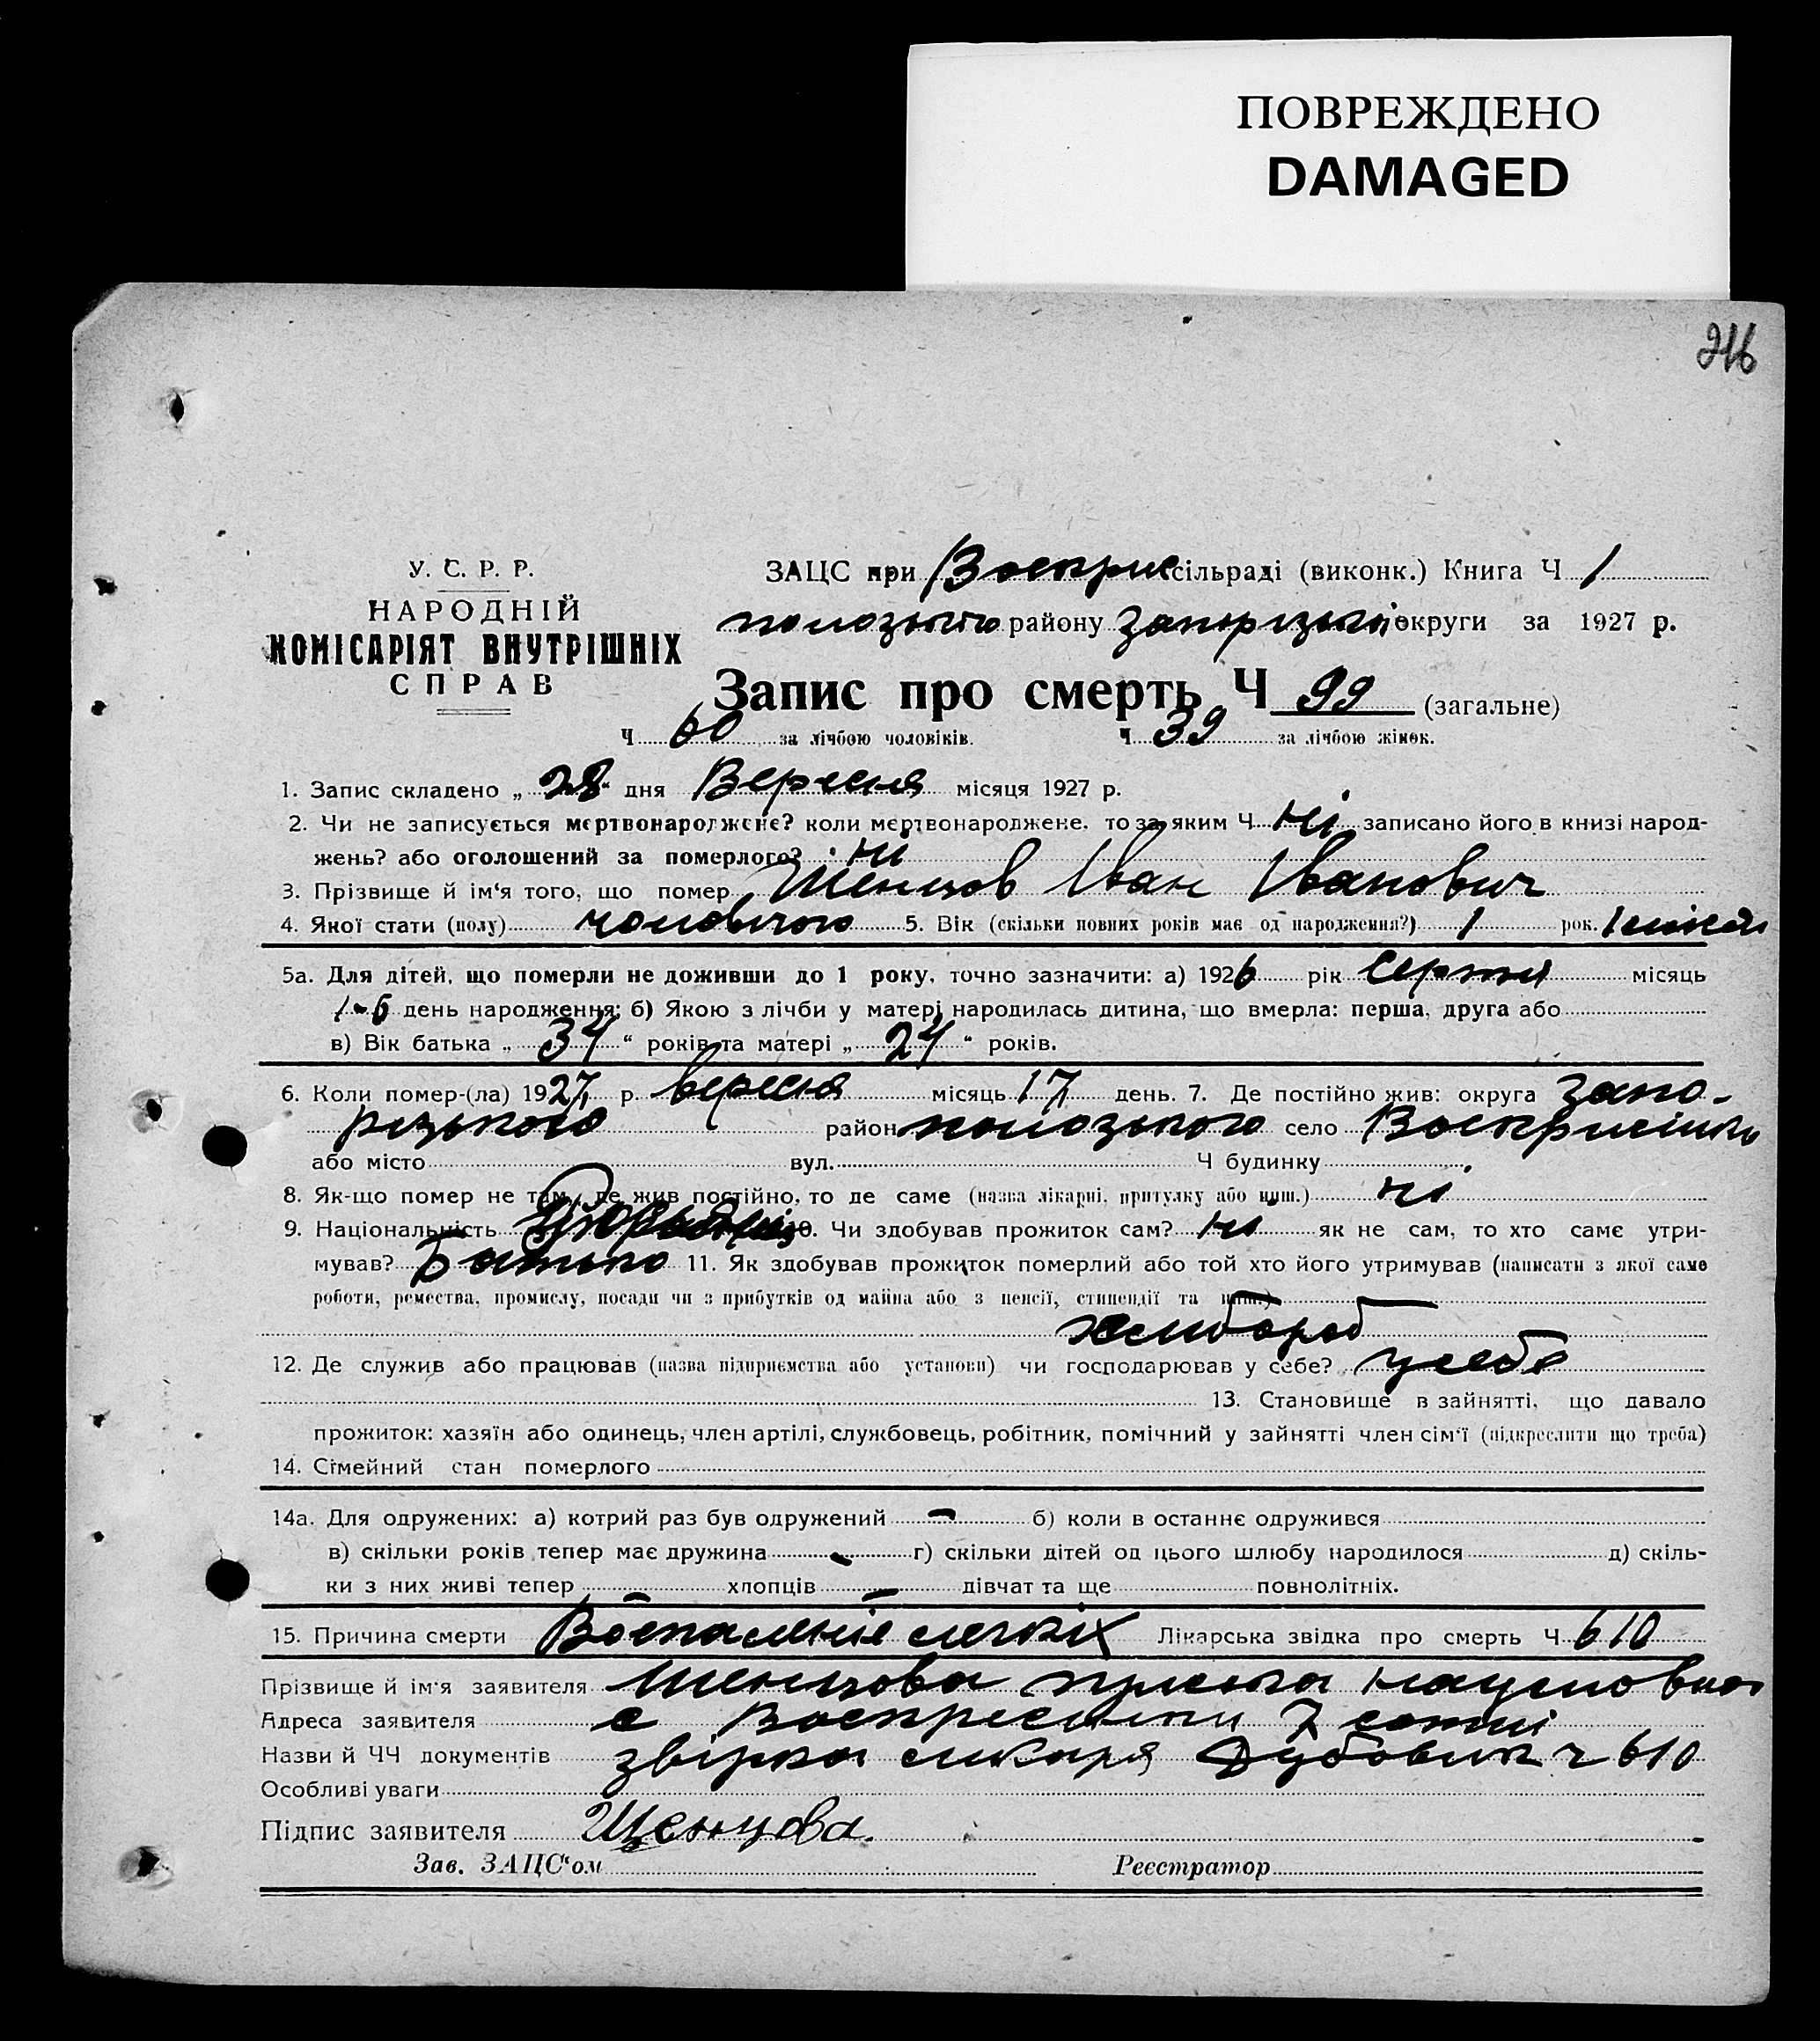 ПОВРЕЖДЕНО
DAMAGED
216
У. С. Р. Р.
НАРОДНІЙ
КОМІСАРІЯТ ВНУТРІШНІХ
СПРАВ
ЗАЦС при Воскрис сільраді (виконк.) Книга Ч 1
пологзького району Запорізької округи за 1927 р.
Запис про смерть Ч 99 (загальне)
Ч 60 за лічбою чоловіків. Ч 39 за лічбою жінок.
1. Запис складено „ 28 “ дня Вересня місяця 1927 р.
2. Чи не записується мертвонароджене? коли мертвонароджене, то за яким Ч ні записано його в книзі народ-
жень? або оголошений за померлого? ні
3. Прізвище й ім‘я того, що помер Шенцов Іван Іванович
4. Якої стати (полу) чоловічого 5. Вік (скільки повних років має од народження?) 1 рок. 1 місяць
5а. Для дітей, що померли не доживши до 1 року, точно зазначити: а) 1926 рік Серпня місяць
день народження; б) Якою з лічби у матері народилась дитина, що вмерла: перша, друга або
в) Вік батька „ 34 “ років та матері „ 24 “ років.
6. Коли помер-(ла) 1927 р. вересня місяць 17 день. 7. Де постійно жив: округа Запо-
різького район пологзького село Воскрисінка
або місто вул. Ч будинку
8. Як-що помер не там, де жив постійно, то де саме (назва лікарні, притулку або инш.) ні
9. Національність 10. Чи здобував прожиток сам? ні як не сам, то хто саме утри-
мував? Батько 11. Як здобував прожиток померлий або той хто його утримував (написати з якої саме
роботи, ремества, промислу, посади чи з прибутків од майна або з пенсії, стипендії та инш.)
хлибороб
12. Де служив або працював (назва підприємства або установи) чи господарював у себе? у себе
13. Становище в зайнятті, що давало
прожиток: хазяїн або одинець, член артілі, службовець, робітник, помічний у зайнятті член сім‘ї (підкреслити що треба)
14. Сімейний стан померлого
14а. Для одружених: а) котрий раз був одружений - б) коли в останнє одружився
в) скільки років тепер має дружина - г) скільки дітей од цього шлюбу народилося д) скіль-
ки з них живі тепер - хлопців - дівчат та ще повнолітніх.
15. Причина смерти Воспаленіе легкіх Лікарська звідка про смерть Ч 610
Прізвище й ім‘я заявителя Шенцова Приська Наумовна
Адреса заявителя с Воскресинки 7 сотні
Назви й ЧЧ документів звірка ликаря Дубовик ч 610
Особливі уваги
Підпис заявителя Щенцова.
Зав. ЗАЦС‘ом Реєстратор